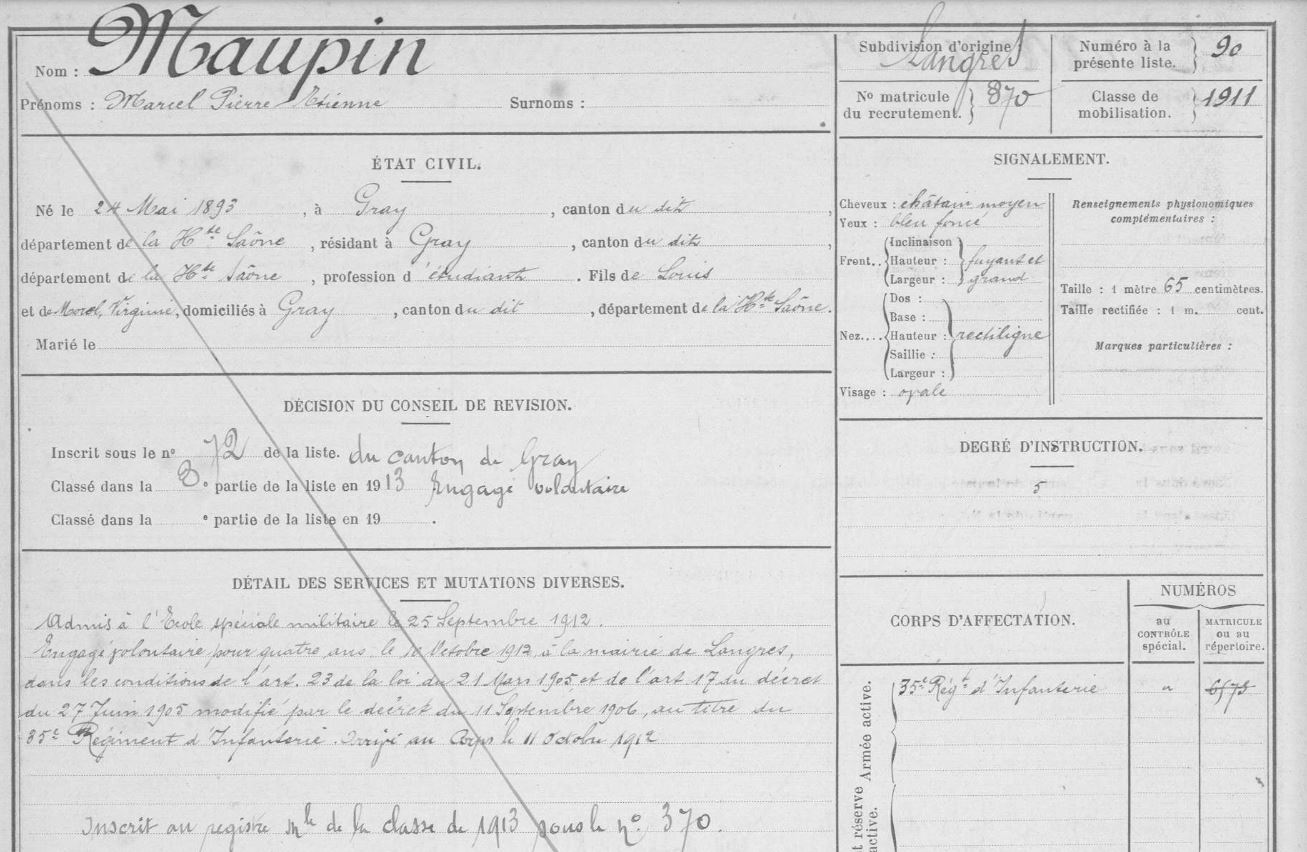 Nom : Maupin
Prénoms : Marcel Pierre Etienne Surnoms :
ÉTAT CIVIL.
Né le 24 Mai 1893, à Gray, canton du dit,
département de la Hte Saône, résidant à Gray, canton du dit,
département de la Hte Saône, profession d'étudiant. Fils de Louis
et de Morel, Virginie, domiciliés à Gray, canton du dit, département de la Hte Saône.
Marié le
DÉCISION DU CONSEIL DE REVISION.
Inscrit sous le nº 72 de la liste. du canton de Gray
Classé dans la 8e partie de la liste en 1913 Engagé volontaire
Classé dans la e partie de la liste en 19 .
DÉTAIL DES SERVICES ET MUTATIONS DIVERSES.
Admis à l'Ecole spéciale militaire le 25 Septembre 1912.
Engagé volontaire pour quatre ans le Octobre 1912 à la mairie de Langres,
dans les conditions de l'art. 23 de la loi du 21 Mars 1905 et de l'art 17 du décret
du 27 Juin 1905 modifié par le décret du 11 Septembre 1906, au titre du
35e Régiment d'Infanterie. Arrivé au Corps le 11 Octobre 1912
Inscrit au registre mle de la classe de 1913 sous le nº 370.
Subdivision d'origine Langres
Numéro à la présente liste. 90
Nº matricule du recrutement. 870
Classe de mobilisation. 1911
SIGNALEMENT.
Cheveux : châtain moyen
Yeux : bleu foncé
Front.. Inclinaison
Hauteur : fuyant et
Largeur : grand
Nez.... Dos :
Base :
Hauteur : rectiligne
Saillie :
Largeur :
Visage : ovale
Renseignements physionomiques
complémentaires :
Taille : 1 mètre 65 centimètres.
Taille rectifiée : 1 m. cent.
Marques particulières :
DEGRÉ D'INSTRUCTION.
5
CORPS D'AFFECTATION.
NUMÉROS
au CONTRÔLE spécial.
MATRICULE ou au répertoire.
Armée active.
35e Régt d'Infanterie "
t réserve
active.